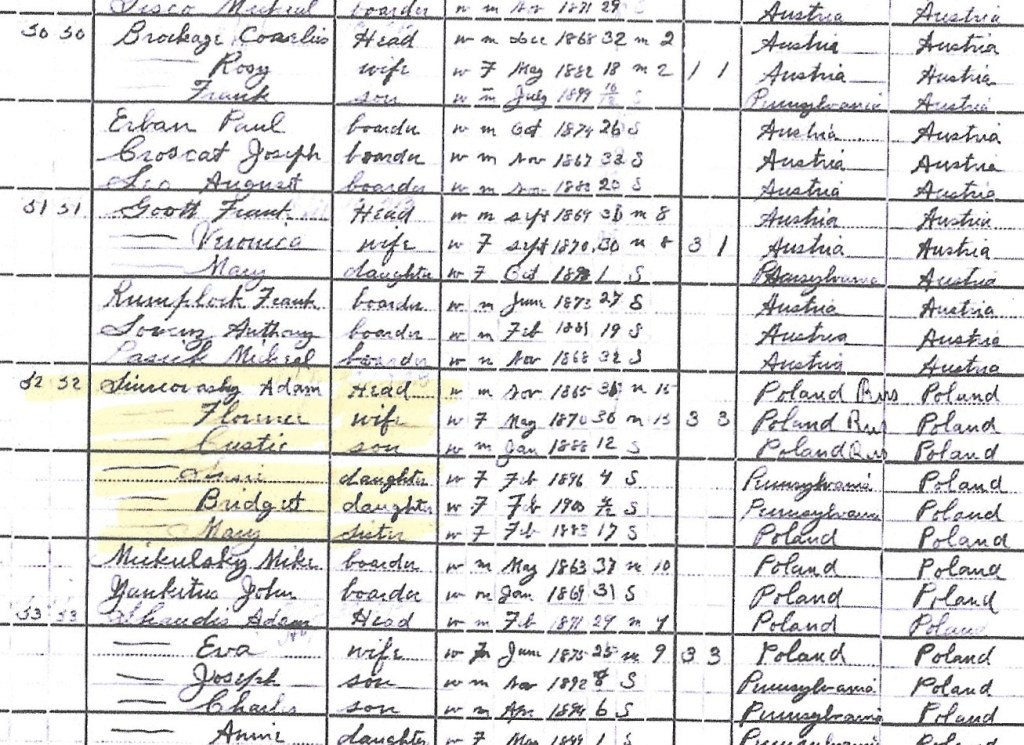 boarder w m Nov 1871 29 S Austria Austria
50 50 Brockage Cornelius Head w m Dec 1868 32 m 2 Austria Austria
— Rosy wife w F May 1882 18 m 2 1 1 Austria Austria
— Frank son w m July 1899 10/12 S Pennsylvania Austria
Erban Paul boarder w m Oct 1874 26 S Austria Austria
Croscat Joseph boarder w m Nov 1867 32 S Austria Austria
August boarder w m Nov 1880 20 S Austria Austria
51 51 Goott Frank Head w m Sept 1869 31 m 8 Austria Austria
— Veronica wife w F Sept 1870 30 m 8 3 1 Austria Austria
— Mary daughter w F Oct 1 S Pennsylvania Austria
Rumplock Frank boarder w m June 1873 27 S Austria Austria
Anthony boarder w m Feb 1881 19 S Austria Austria
Pasick Mikeal boarder w m Nov 1868 32 S Austria Austria
52 52 Adam Head w m Nov 1865 m 15 Poland Rus Poland
— Florence wife w F May 1870 30 m 15 3 3 Poland Rus Poland
— Custie son w m Jan 1888 12 S Poland Rus Poland
— daughter w F Feb 1896 4 S Pennsylvania Poland
— Bridget daughter w F Feb 1900 S Pennsylvania Poland
— Mary sister w F Feb 1883 17 S Poland Poland
Mickulsky Mike boarder w m May 1863 37 m 10 Poland Poland
Yankitus John boarder w m Jan 1869 31 S Poland Poland
53 53 Adam Head w m Feb 1871 29 m Poland Poland
— Eva wife w F June 1875 25 m 9 3 3 Poland Poland
— Joseph son w m Nov 1892 S Pennsylvania Poland
— Charles son w m Apr 1894 6 S Pennsylvania Poland
— Annie daughter w F May 1899 1 S Pennsylvania Poland